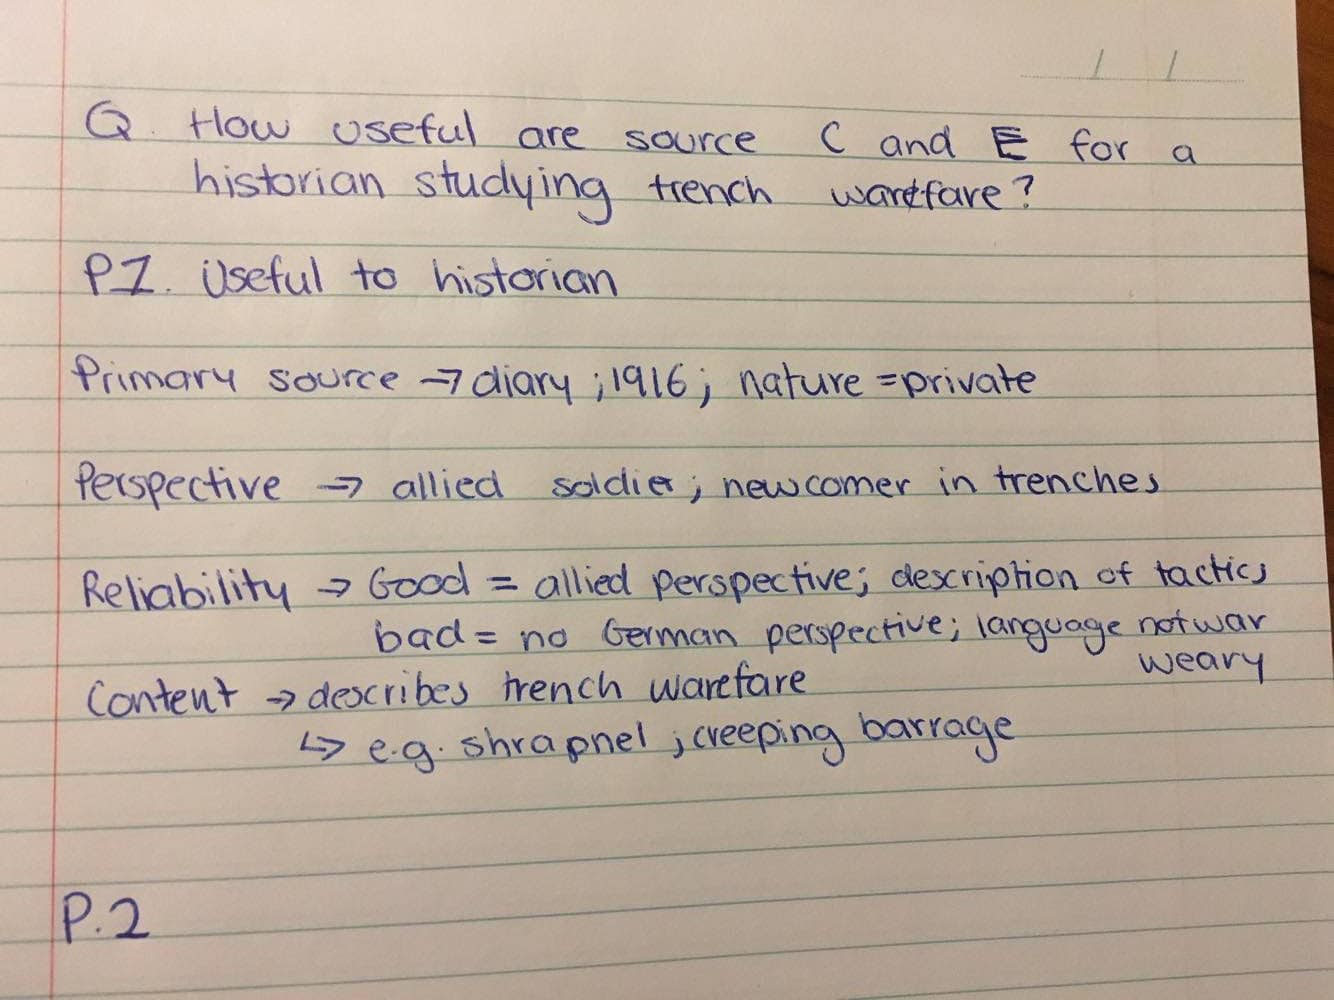 / /
Q. How useful are source C and E for a
historian studying trench warefare?
P1. Useful to historian
Primary source → diary ; 1916 ; nature = private
Perspective → allied soldier ; newcomer in trenches
Reliability → Good = allied perspective ; description of tactics
bad = no German perspective ; language not war
weary
Content → describes trench warefare
↳ e.g. shrapnel ; creeping barrage
P.2